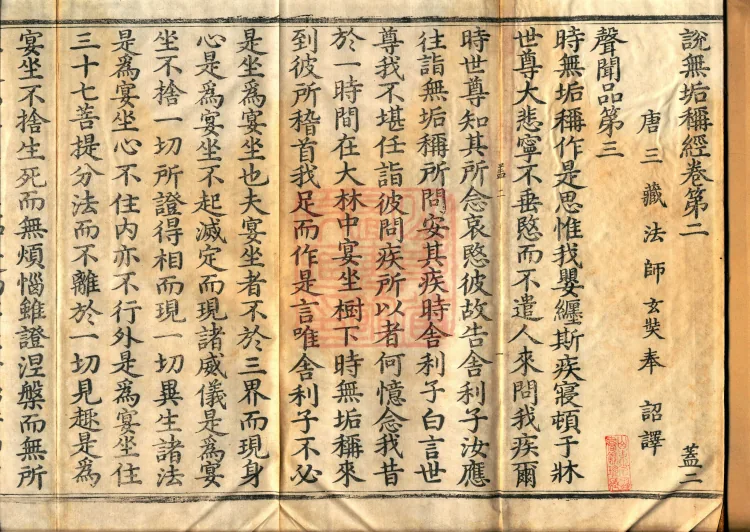 說無垢稱經卷第二 蓋二
唐三藏法師玄奘奉 詔譯
聲聞品第三
時無垢稱作是思惟我嬰纏斯疾寢頓于牀
世尊大悲寧不垂愍而不遣人來問我疾爾
時世尊知其所念哀愍彼故告舍利子汝應
往詣無垢稱所問安其疾時舍利子白言世
蓋二
尊我不堪任詣彼問疾所以者何憶念我昔
於一時間在大林中宴坐樹下時無垢稱來
到彼所稽首我足而作是言唯舍利子不必
是坐爲宴坐也夫宴坐者不於三界而現身
心是爲宴坐不起滅定而現諸威儀是爲宴
坐不捨一切所證得相而現一切異生諸法
是爲宴坐心不住內亦不行外是爲宴坐住
三十七菩提分法而不離於一切見趣是爲
宴坐不捨生死而無煩惱雖證涅槃而無所